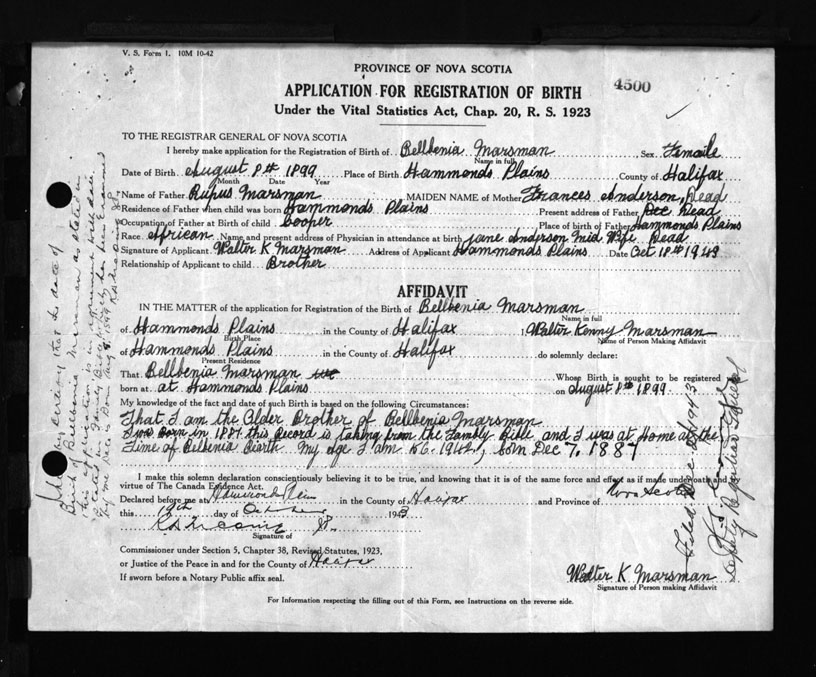 V. S. Form 1. 10M 10-42
PROVINCE OF NOVA SCOTIA
4500
APPLICATION FOR REGISTRATION OF BIRTH
Under the Vital Statistics Act, Chap. 20, R. S. 1923
TO THE REGISTRAR GENERAL OF NOVA SCOTIA
I hereby make application for the Registration of Birth of Bellbenia Marsman Sex Femaile
Name in full
Date of Birth August 8th 1899 Place of Birth Hammonds Plains County of Halifax
Month Date Year
Name of Father Rufus Marsman MAIDEN NAME of Mother Frances Anderson, Dead
Residence of Father when child was born Hammonds Plains Present address of Father Dead
Occupation of Father at Birth of child Cooper Place of birth of Father Hammonds Plains
Race African Name and present address of Physician in attendance at birth Jane Anderson Mid Wife Dead
Signature of Applicant Walter K Marsman Address of Applicant Hammonds Plains Date Oct 18th 1943
Relationship of Applicant to child Brother
AFFIDAVIT
IN THE MATTER of the application for Registration of the Birth of Bellbenia Marsman
Name in full
of Hammonds Plains in the County of Halifax I Walter Kenny Marsman
Birth Place Name of Person Making Affidavit
of Hammonds Plains in the County of Halifax do solemnly declare:
Present Residence
That Bellbenia Marsman Whose Birth is sought to be registered
born at at Hammonds Plains on August 8th 1899
My knowledge of the fact and date of such Birth is based on the following Circumstances:
That I am the Older Brother of Bellbenia Marsman
I was Born in 1887 this Record is taking from the Family Bible and I was at Home at the
Time of Belbenia Birth My age I am 56. born Dec 7, 1887
I make this solemn declaration conscientiously believing it to be true, and knowing that it is of the same force and effect as if made under oath and by
virtue of The Canada Evidence Act.
Declared before me at Hammonds Plains in the County of Halifax and Province of Nova Scotia
this 19th day of October 1943
J.P.
Signature of
Commissioner under Section 5, Chapter 38, Revised Statutes, 1923,
or Justice of the Peace in and for the County of Halifax
If sworn before a Notary Public affix seal.
Walter K Marsman
Signature of Person making Affidavit
For Information respecting the filling out of this Form, see Instructions on the reverse side.
certify that the date of
Birth of Bellbenia Marsman as stated in
this application is in agreement with date
stated in Family Bible which has been Examined
by me he is Born Aug 8, 1899
Filed 1943
Deputy Registrar General